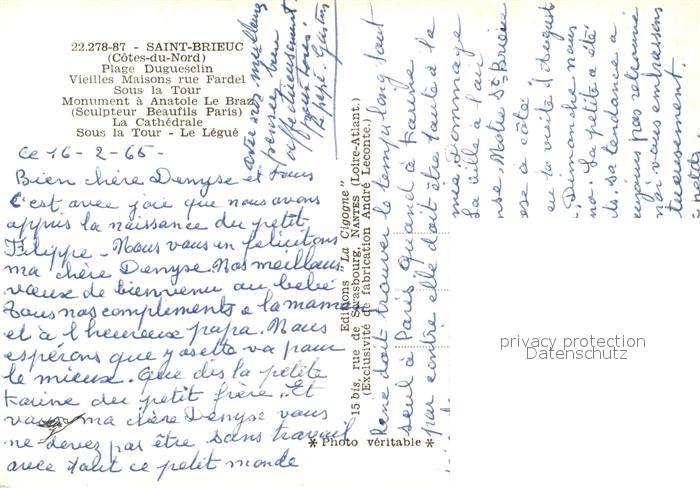 22.278-87 - SAINT-BRIEUC
(Côtes-du-Nord)
Plage Duguesclin
Vieilles Maisons rue Fardel
Sous la Tour
Monument à Anatole Le Braz
(Sculpteur Beaufils Paris)
La Cathédrale
Sous la Tour - Le Légué
Ce 16-2-65-
Bien chère Denyse et tous
C'est avec joie que nous avons
appris la naissance du petit
Filippe - Nous vous en félicitons
ma chère Denyse. Nos meilleurs
vœux de bienvenu au bébé
Tous nos compliments a la maman
et à l'heureux papa. Nous
espérons que
va pour
le mieux. Que dis la petite
Karine du petit frère. Et
vous ma chère Denyse vous
ne devez pas être sans travail
avec tout ce petit monde
René doit trouver le temps long tout
seul à Paris quand à Karine
par contre elle doit être toute à la
mie. Dommage
La ville a l'air
nse. Notre St Brieuc
ese à côté
eu la visite d'
Dimanche nous
no. La petite a été
de sa tendance a
pas retrouvé
vous embrassons
tueusement.
avec nos meilleurs
pensées bien
affectueusement
pour tous
pépé. Gaston
Editions "La Cigogne"
15 bis, rue de Strasbourg, NANTES (Loire-Atlant.)
(Exclusivité de fabrication André Leconte.)
* Photo véritable *
privacy protection
Datenschutz